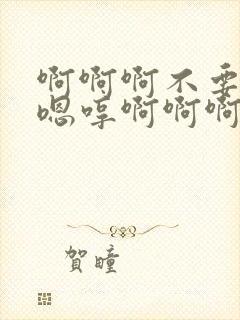 啊啊啊不要
嗯哼啊啊啊
賀瞳